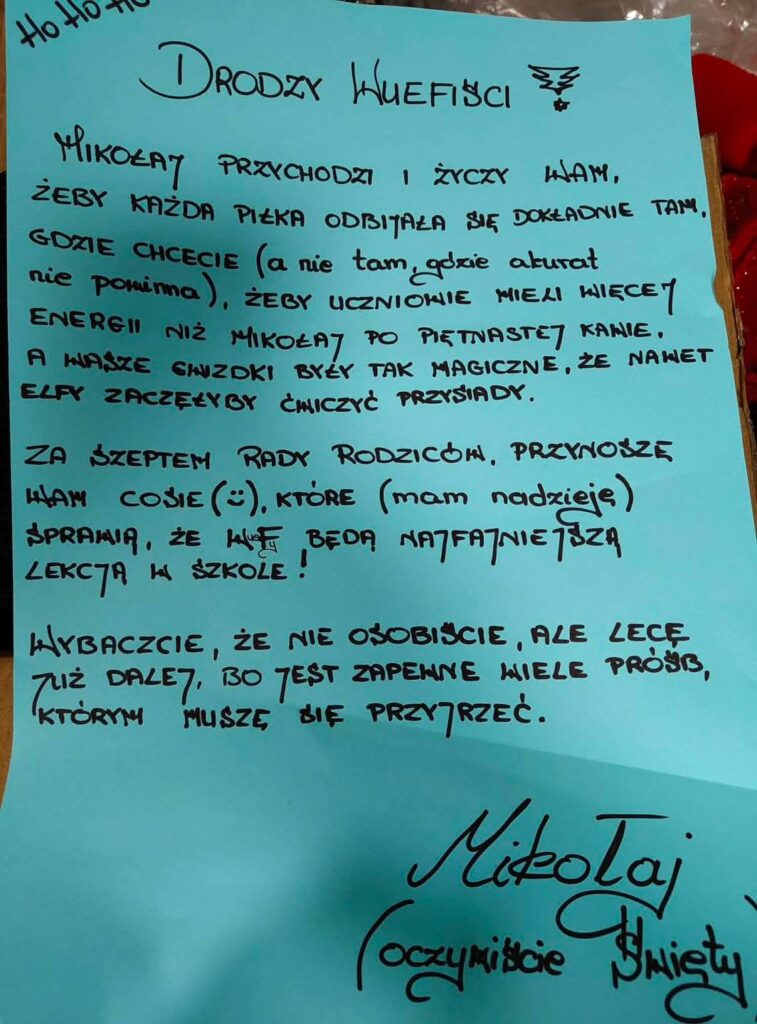 Ho Ho Ho
DRODZY WUEFIŚCI
MIKOŁAJ PRZYCHODZI I ŻYCZY WAM,
ŻEBY KAŻDA PIŁKA ODBIJAŁA SIĘ DOKŁADNIE TAM,
GDZIE CHCECIE (a nie tam, gdzie akurat
nie powinna), ŻEBY UCZNIOWIE MIELI WIĘCEJ
ENERGII NIŻ MIKOŁAJ PO PIĘTNASTEJ KAWIE,
A WASZE GWIZDKI BYŁY TAK MAGICZNE, ŻE NAWET
ELFY ZACZĘŁYBY ĆWICZYĆ PRZYSIADY.
ZA SZEPTEM RADY RODZICÓW, PRZYNOSZĘ
WAM COSIE (), KTÓRE (mam nadzieję)
SPRAWIĄ, ŻE BĘDĄ NAJFAJNIEJSZĄ
LEKCJĄ W SZKOLE!
WYBACZCIE, ŻE NIE OSOBIŚCIE, ALE LECĘ
JUŻ DALEJ, BO JEST ZAPEWNE WIELE PRÓŚB,
KTÓRYM MUSZĘ SIĘ PRZYJRZEĆ.
Mikołaj
(oczywiście Święty)